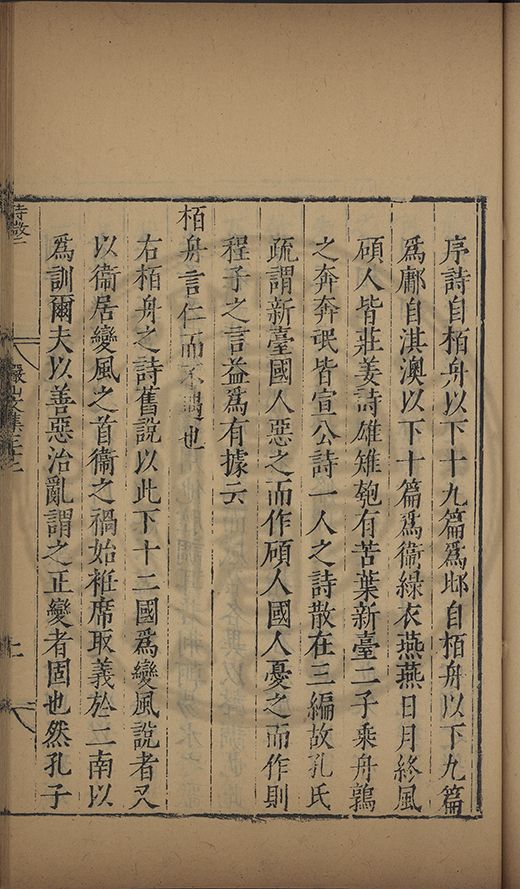 序詩自栢舟以下十九篇爲邶自栢舟以下九篇
爲鄘自淇澳以下十篇爲衞綠衣燕燕日月終風
碩人皆莊姜詩雄雉匏有苦葉新臺二子乘舟鶉
之奔奔氓皆宣公詩一人之詩散在三編故孔氏
疏謂新臺國人惡之而作碩人國人憂之而作則
程子之言益爲有據云
栢舟言仁而不遇也
右栢舟之詩舊說以此下十二國爲變風說者又
以衞居變風之首衞之禍始袵席取義於二南以
爲訓爾夫以善惡治亂謂之正變者固也然孔子
詩
集三十二